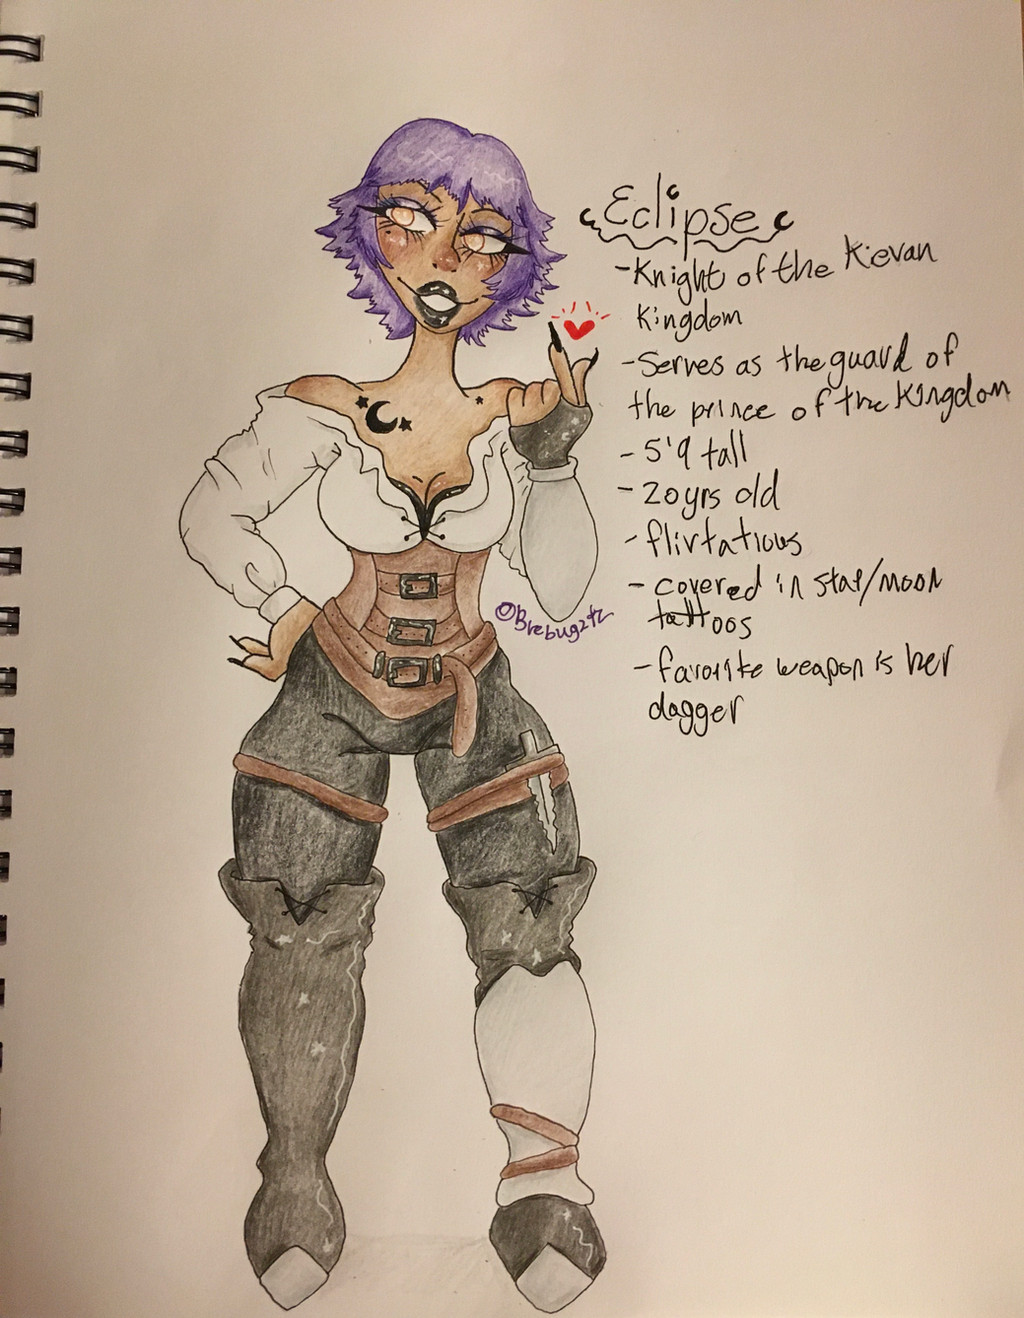 Eclipse
-Knight of the Kevan
Kingdom
-Serves as the guard of
the prince of the Kingdom
-5'9 tall
-20yrs old
-flirtatious
-covered in star/moon
tattoos
-favorite weapon is her
dagger